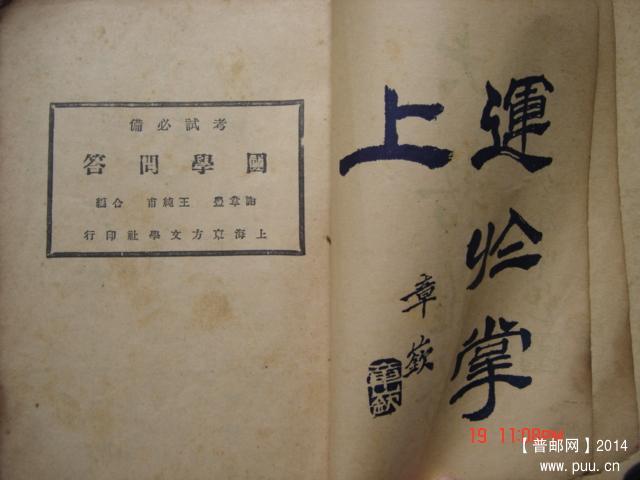 運於掌
上
章嶔
章嶔
考試必備
國學問答
王純甫 合編
上海東方文學社印行
19 11:08PM
【普邮网】2014
www.puu.cn